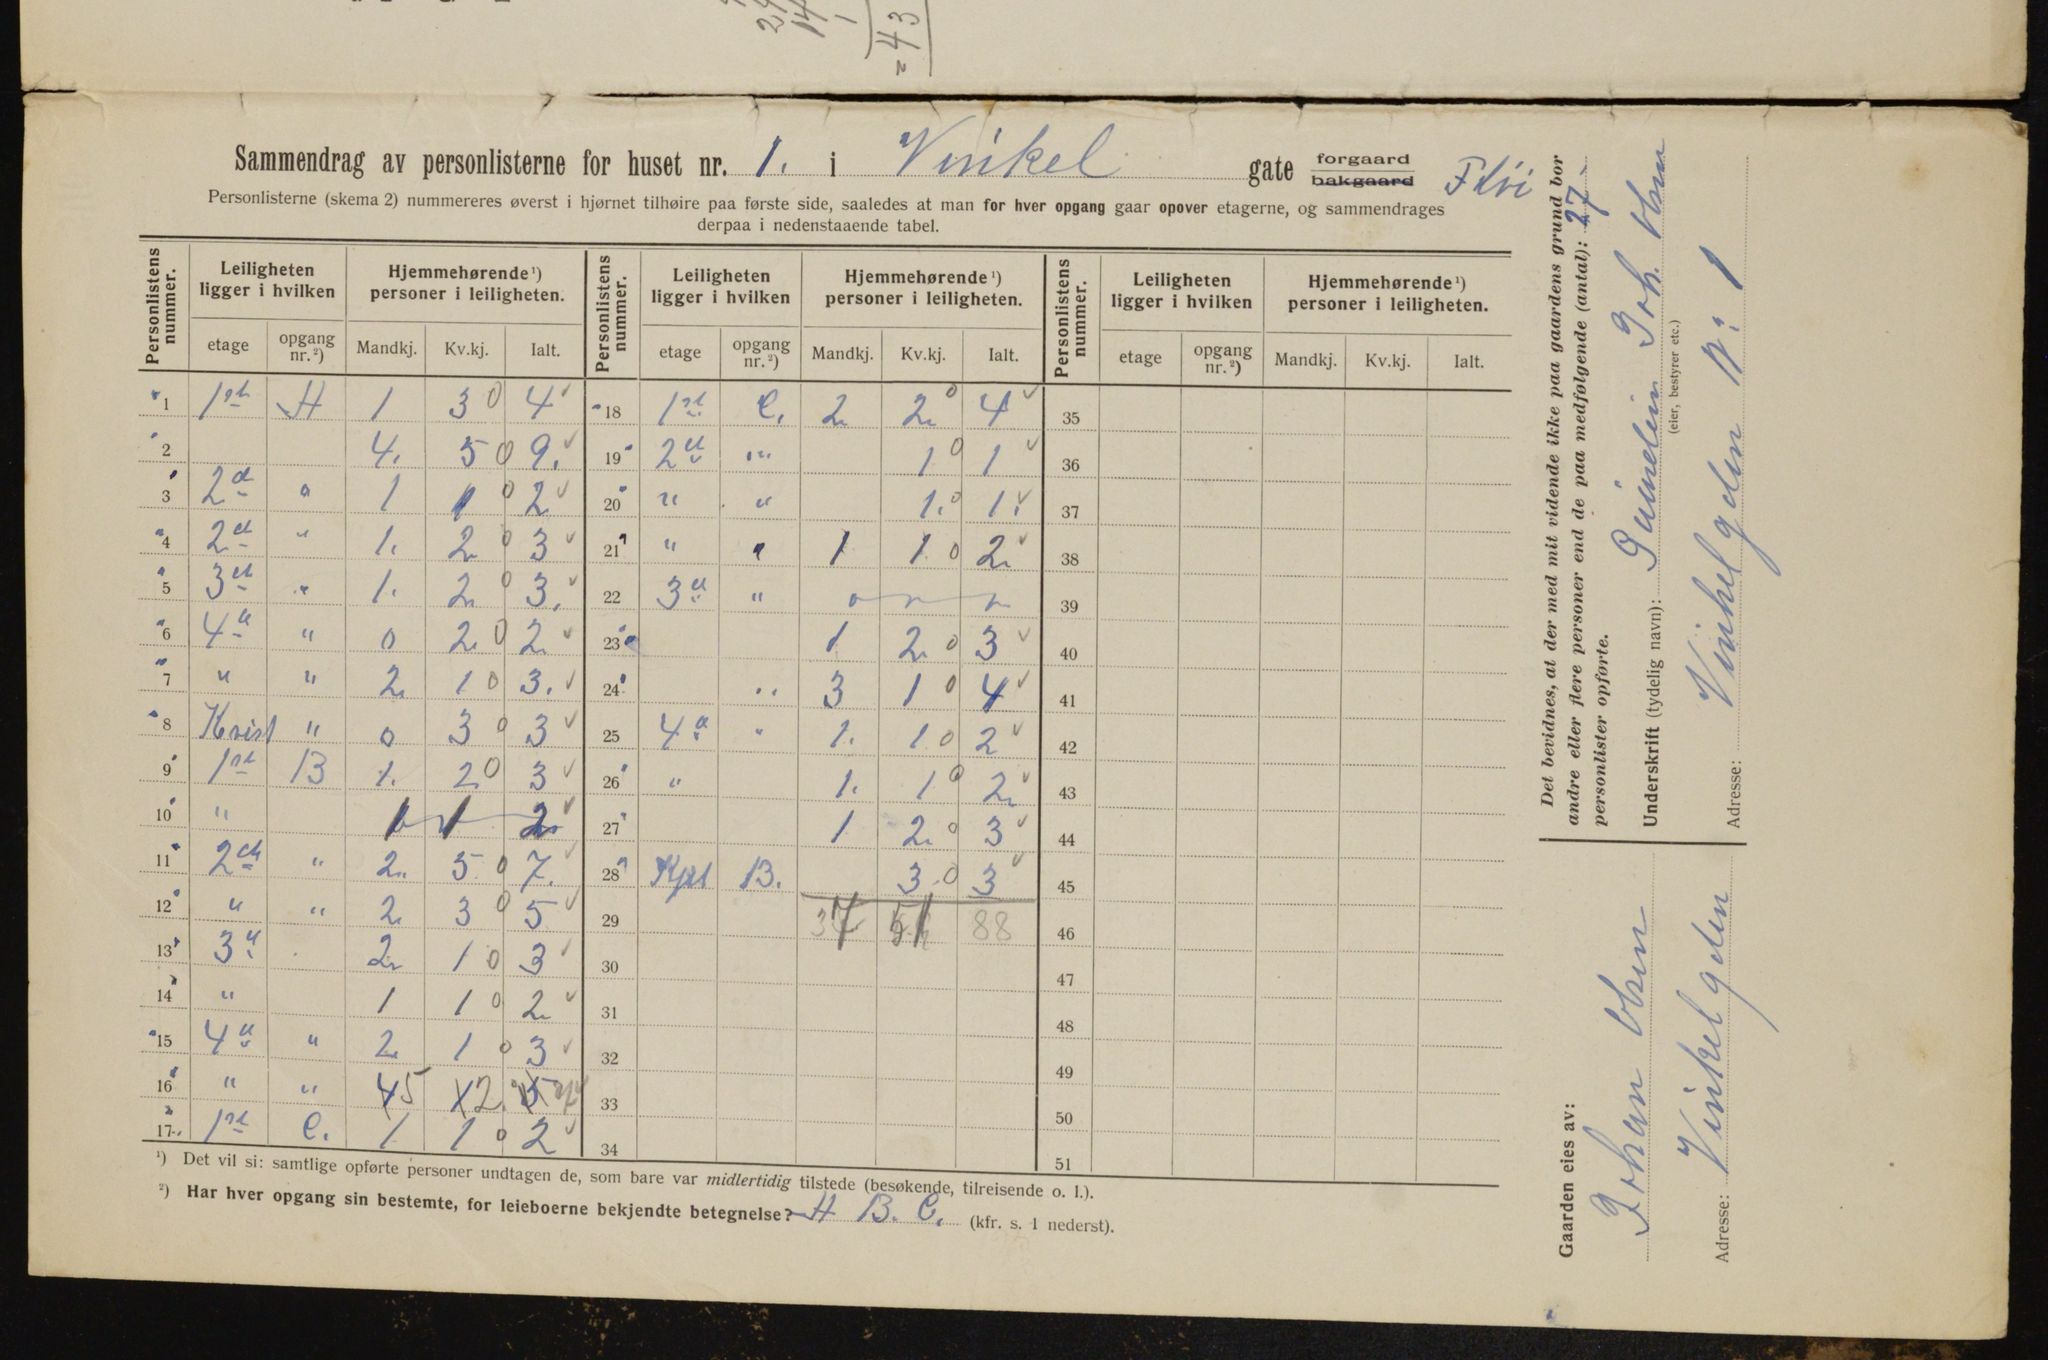 = 43
Sammendrag av personlisterne for huset nr. 1. i Vinkel gate forgaard bakgaard
Personlisterne (skema 2) nummereres øverst i hjørnet tilhøire paa første side, saaledes at man for hver opgang gaar opover etagerne, og sammendrages
derpaa i nedenstaaende tabel.
Personlistens nummer. Leiligheten ligger i hvilken Hjemmehørende ¹) personer i leiligheten. Personlistens nummer. Leiligheten ligger i hvilken Hjemmehørende ¹) personer i leiligheten. Personlistens nummer. Leiligheten ligger i hvilken Hjemmehørende ¹) personer i leiligheten.
etage opgang nr. ²) Mandkj. Kv.kj. Ialt. etage opgang nr. ²) Mandkj. Kv.kj. Ialt. etage opgang nr. ²) Mandkj. Kv.kj. Ialt.
1 1ste A 1 3 0 4 18 1ste C. 2 2 0 4 35
2 4. 5 0 9. 19 2den " 1 0 1 36
3 2d " 1 1 0 2 20 " " 1. 0 1. 37
4 2d " 1. 2 0 3 21 " " 1 1 0 2 38
5 3d " 1. 2 0 3. 22 3d " 39
6 4d " 0 2 0 2 23 1 2 0 3 40
7 " " 2 1 0 3. 24 " 3 1 0 4 41
8 Kvist " 0 3 0 3 25 4d " 1. 1 0 2 42
9 1ste B 1. 2 0 3 26 " 1. 1 0 2 43
10 " 1 1 2 27 1 2 0 3 44
11 2den " 2 5 0 7. 28 B. 3 0 3 45
12 " " 2 3 0 5 29 37 51 88 46
13 3d 2 1 0 3 30 47
14 " 1 1 0 2 31 48
15 4d " 2 1 0 3 32 49
16 " " 4 5 2 5 33 50
17 1ste C. 1 1 0 2 34 51
¹) Det vil si: samtlige opførte personer undtagen de, som bare var midlertidig tilstede (besøkende, tilreisende o. l.).
²) Har hver opgang sin bestemte, for leieboerne bekjendte betegnelse? A B. C. (kfr. s. 1 nederst).
Det bevidnes, at der med mit vidende ikke paa gaardens grund bor
andre eller flere personer end de paa medfølgende (antal): 27
personlister opførte.
Underskrift (tydelig navn): Joh. Olsen
(eier, bestyrer etc.)
Adresse: Vinkelgden No. 1
Gaarden eies av:
Johan Olsen
Adresse: Vinkelgden